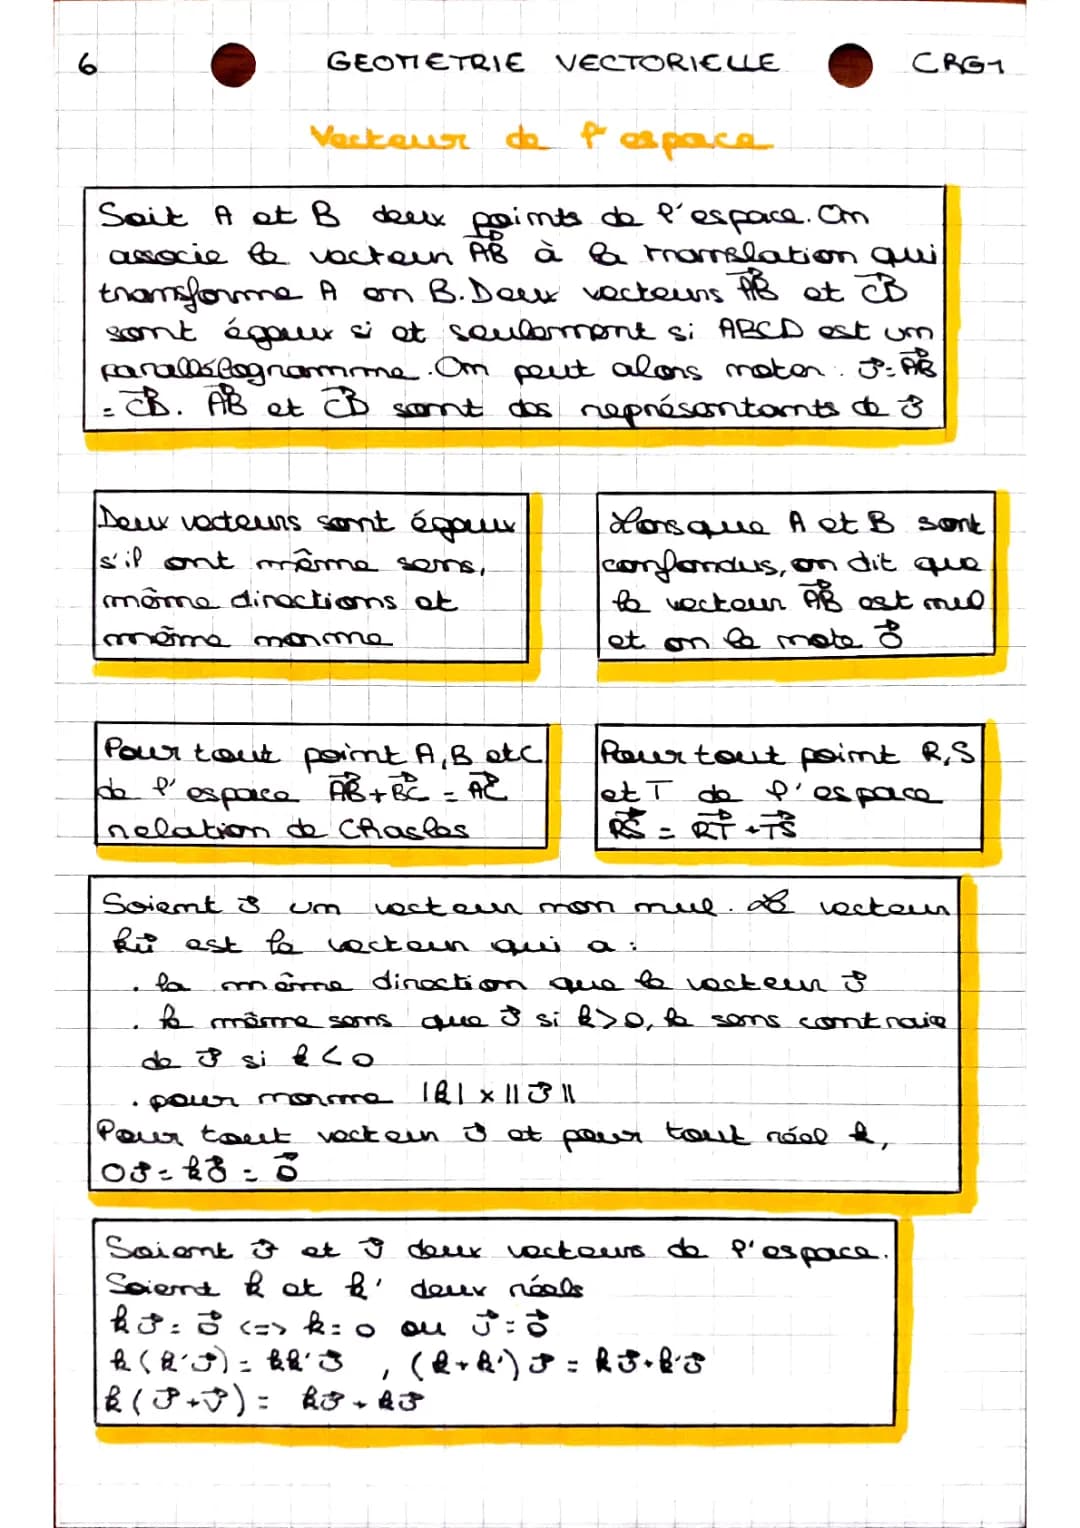 6 GEOMETRIE VECTORIELLE CRG1
Vecteur de l'espace
Soit A et B deux points de l'espace. On
associe le vecteur AB⃗ à la translation qui
transforme A en B. Deux vecteurs AB⃗ et CD⃗
sont égaux si et seulement si ABCD est un
parallélogramme. On peut alors noter : u⃗ = AB⃗
= CD⃗. AB⃗ et CD⃗ sont des représentants de u⃗
Deux vecteurs sont égaux
s'il ont même sens,
même directions et
même norme
Lorsque A et B sont
confondus, on dit que
le vecteur AB⃗ est nul
et on le note 0⃗
Pour tout point A, B et C
de l'espace AB⃗ + BC⃗ = AC⃗
relation de Chasles
Pour tout point R, S
et T de l'espace
RS⃗ = RT⃗ + TS⃗
Soient u⃗ un vecteur non nul. Le vecteur
ku⃗ est le vecteur qui a :
. la même direction que le vecteur u⃗
. le même sens que u⃗ si k>0, le sens contraie
de u⃗ si k<0
. pour norme |k| x ||u⃗||
Pour tout vecteur u⃗ et pour tout réel k,
0u⃗ = k0⃗ = 0⃗
Soient u⃗ et v⃗ deux vecteurs de l'espace.
Soient k et k' deux réels
ku⃗ = 0⃗ <=> k = 0 ou u⃗ = 0⃗
k(k'u⃗) = kk'u⃗ , (k+k')u⃗ = ku⃗ + k'u⃗
k(u⃗+v⃗) = ku⃗ + kv⃗